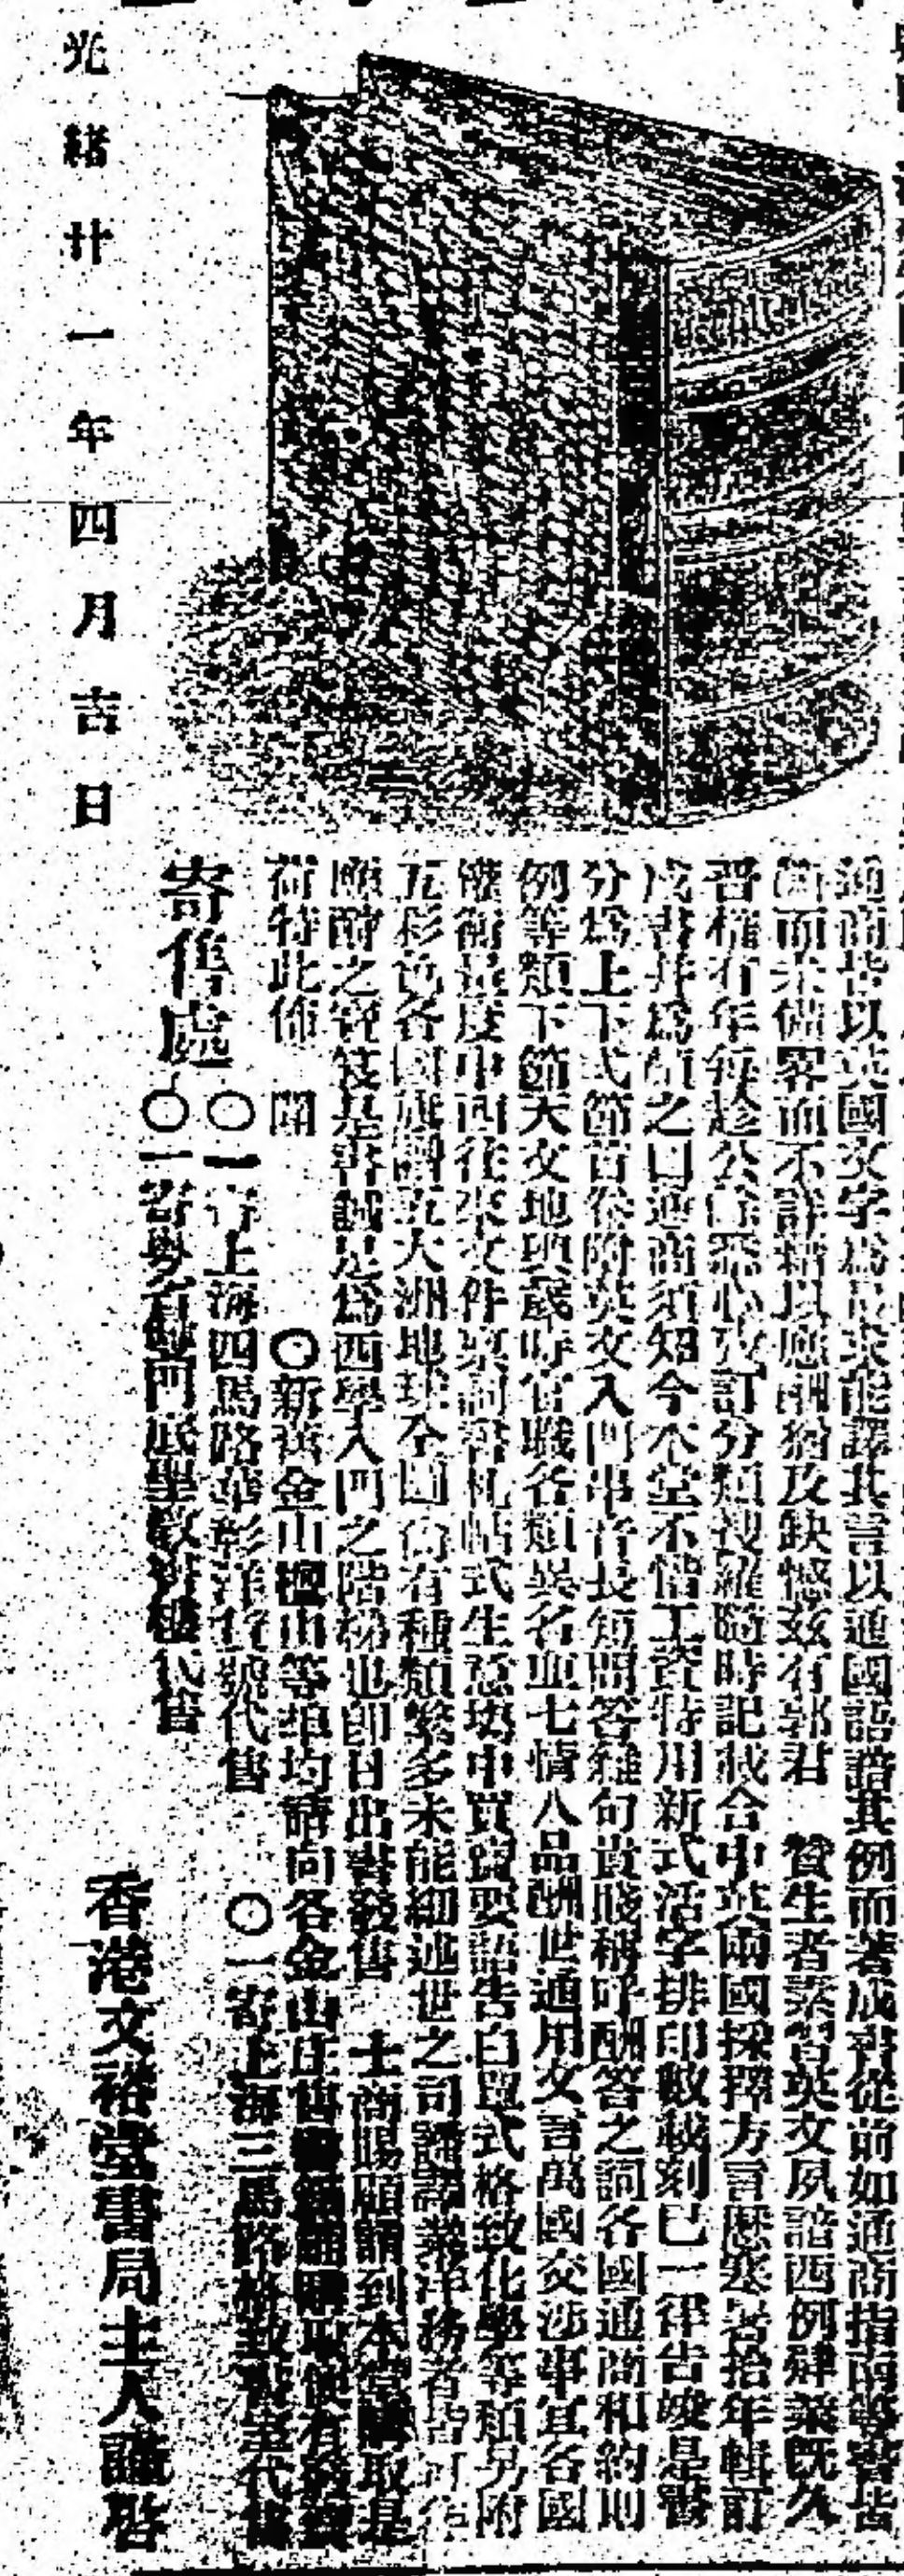 通商皆以英國文字為 能譯其言以通國語諳其例而著成書從前如通商指南等書皆
簡而未備畧而不詳藉以應酬猶及缺憾茲有郭君 贊生者素習英文夙諳西例肄業既久
晋權有年每趁公餘悉心攷訂分類搜羅隨時記載合中英兩國採擇方言歷寒暑拾年輯訂
成書并為顏之曰通商須知今本堂不惜工資特用新式活字排印數載刻已一律告竣是書
分為上下弍節首卷附英文入門串音長短問答雜句貴賤稱呼酬答之詞各國通商和約則
例等類下節天文地理歲時官職各類異名並七情八品酬世通用文言萬國交涉事宜各國
權衡量度中西往來文件稟詞書札帖式生意場中買賣要語告白單式格致化學等類另附
五彩色各國旗號五大洲地球全圖尚有種類繁多未能細述世之司 業洋務者皆可
應酬之 是書誠足為西學入門之階梯也即日出書發售 士商賜顧請到本堂購取是
荷特此佈 聞 ○新舊金山檀山等埠均請向各金山庄售 取便有
寄售處 ○一寄上海四馬路華彰洋貨號代售 ○一寄上海三馬路格致 室代售
○一寄粵省 門底聖教書樓代售
香港文裕堂書局主人謹啓
光緒廿一年四月吉日